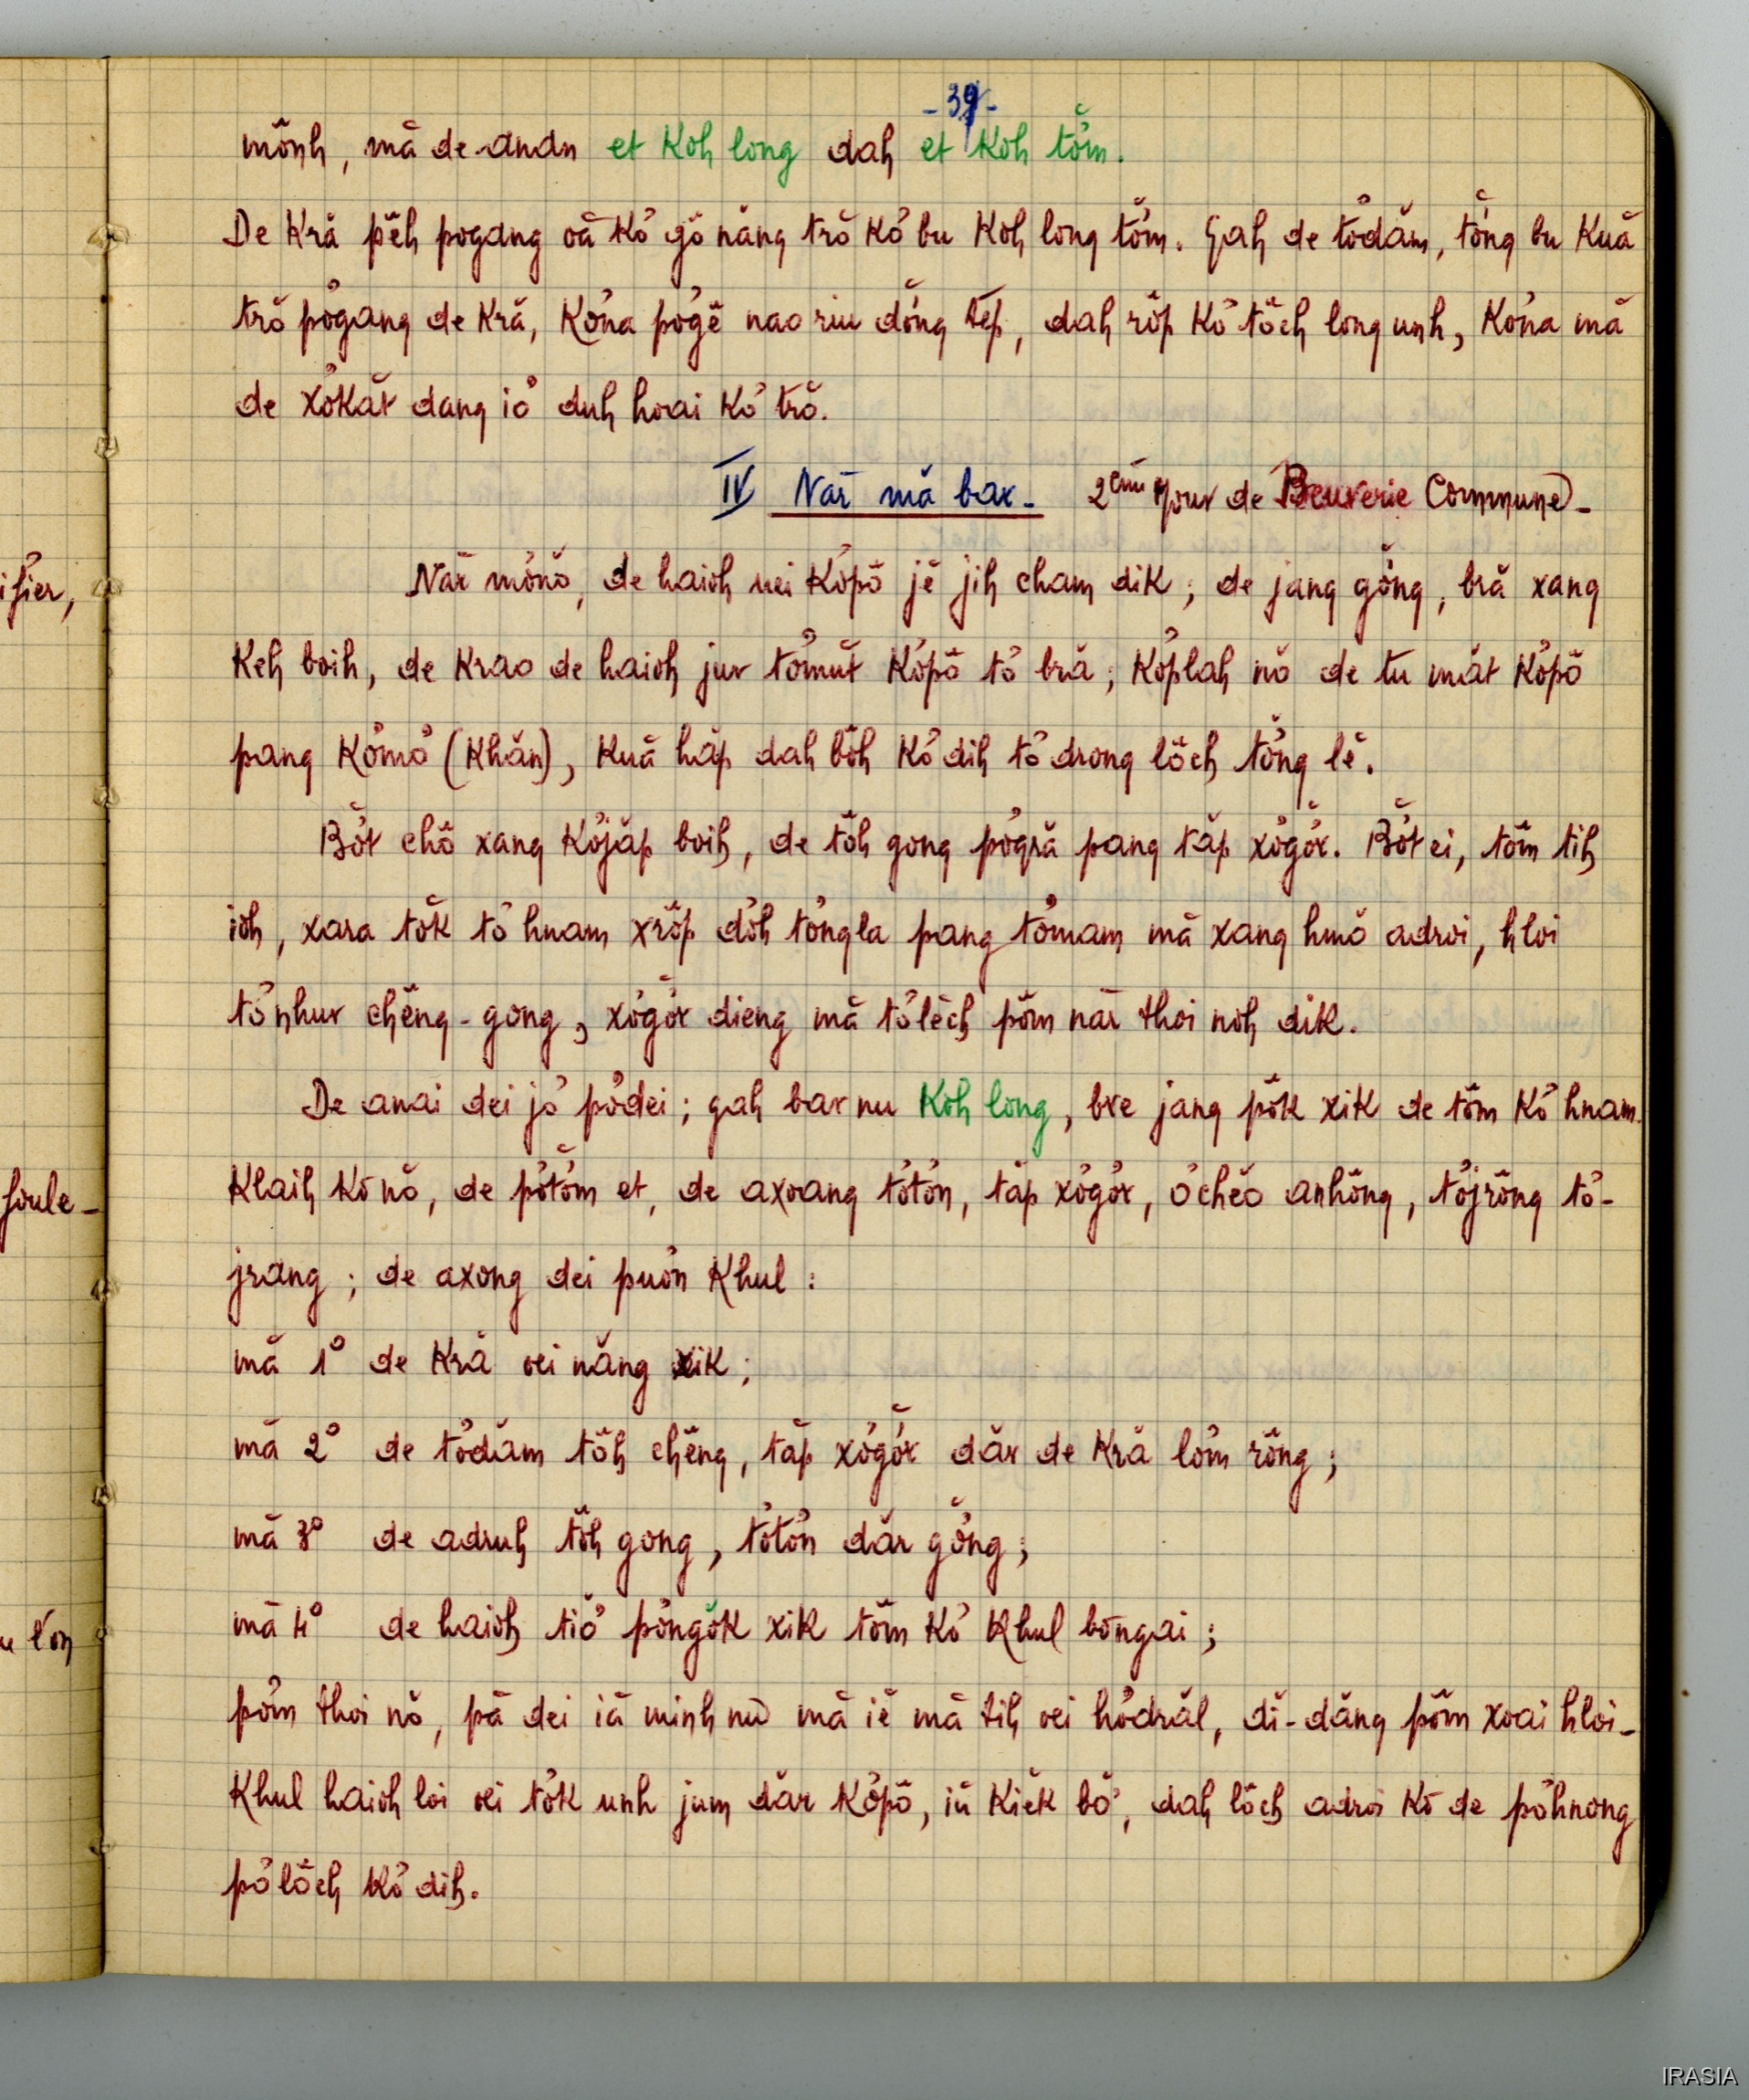 - 39 -
mônh, mă de anăn et Koh long dah et Koh tơ̆m.
De Kră pĕh pơgang oă kơ gô năng trŏ kơ bu Koh long tơ̆m. Gah de tơdăm, tơ̆ng bu Kuă
trŏ pơgang de Kră, Kơna pơgĕ nao riu dơ̆ng tĕp, dah rôp kơ tŏch long unh, Kơna mă
de xơkăt dang iơ duh hoai kơ trŏ.
IV Năr mă bar - 2ème Jour de Beuverie Commune -
Năr mơnŏ, de haioh nei Kơpô jĕ jih cham dik ; de jang gơ̆ng, bră xang
Keh boih, de Krao de haioh jur tơmŭt Kơpô tơ bră ; Kơplah nŏ de tu măt Kơpô
pang Kơmơ (Khăn), Kuă hăp dah bôh kơ dih tơ drong lôch tơ̆ng lĕ.
Bơ̆t chô xang Kơjăp boih, de tôh gong pơgră pang tăp xơgơ̆r. Bơ̆t ei, tôm tih
ioh, xara tŏk tơ hnam xrŏp dôh tơngla pang tơmam mă xang hmŏ adroi, hloi
tơnhur chêng-gong, xơgơ̆r dieng mă tơlĕch pơ̆m năr thoi noh dik.
De anai dei jơ pơdei ; gah bar nu Koh long, bre jang pŏk xik de tôm kơ hnam.
Klaih kơ nŏ, de pơtơ̆m et, de axoang tơtơ̆n, tăp xơgơ̆r, ơchĕo anhông, tơjrông tơ-
jrang ; de axong dei puơ̆n Khul :
mă 1° de Kră oei năng xik ;
mă 2° de tơdăm tôh chêng, tăp xơgơ̆r dăr de Kră lơ̆m rông ;
mă 3° de adruh tôh gong, tơtơ̆n dăr gơ̆ng ;
mă 4° de haioh tiŏ pơngŏk xik tôm kơ Khul bơngai ;
pơ̆m thoi nŏ, pă dei iă minh nu mă iĕ mă tih oei hơdrăl, dĭ-dăng pơ̆m xoai hloi -
Khul haioh loi oei tŏk unh jum dăr Kơpô, iŭ Kiĕk bơ̆, dah lôch adroi kơ de pơhnong
pơlôch kơ dih.
ifier,
foule -
u l'on
IRASIA